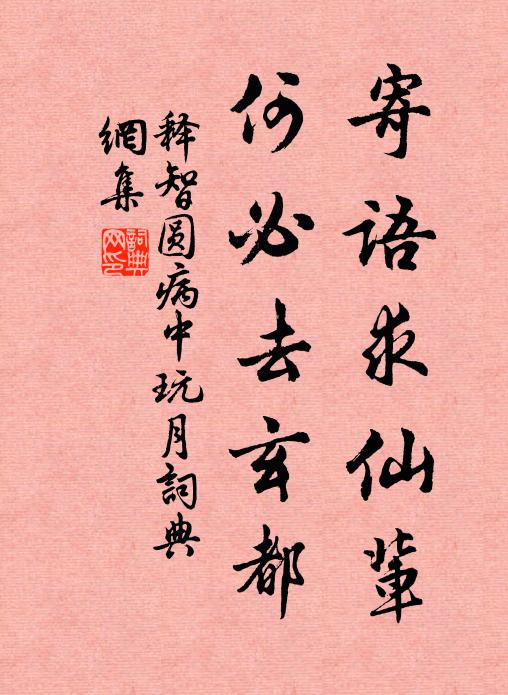 寄语求仙輩
何必去玄都
释智圆病中玩月詞典
網集
詞典网印